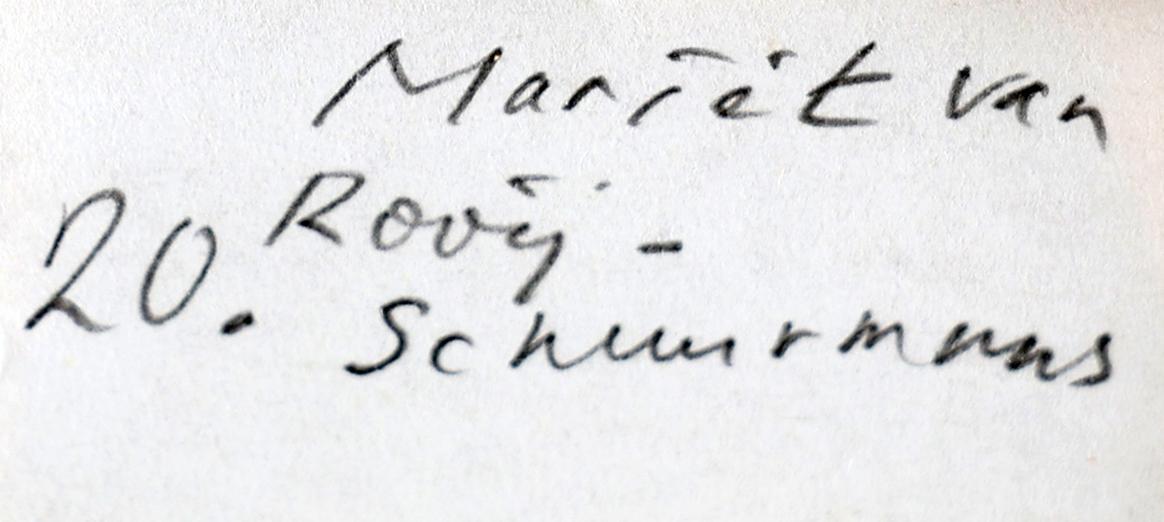 Mariët van
20. Rooij -
Schuurmans